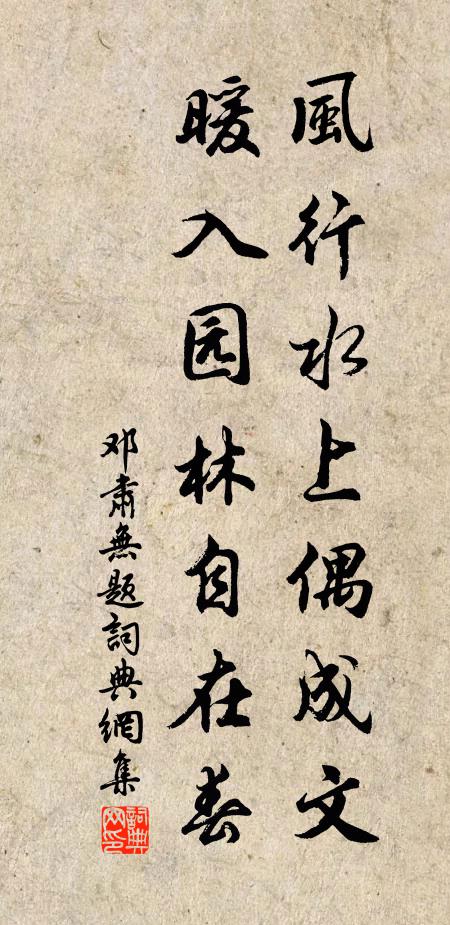 風行水上偶成文
暖入园林自在春
邓肅無題詞典網集
詞典網印